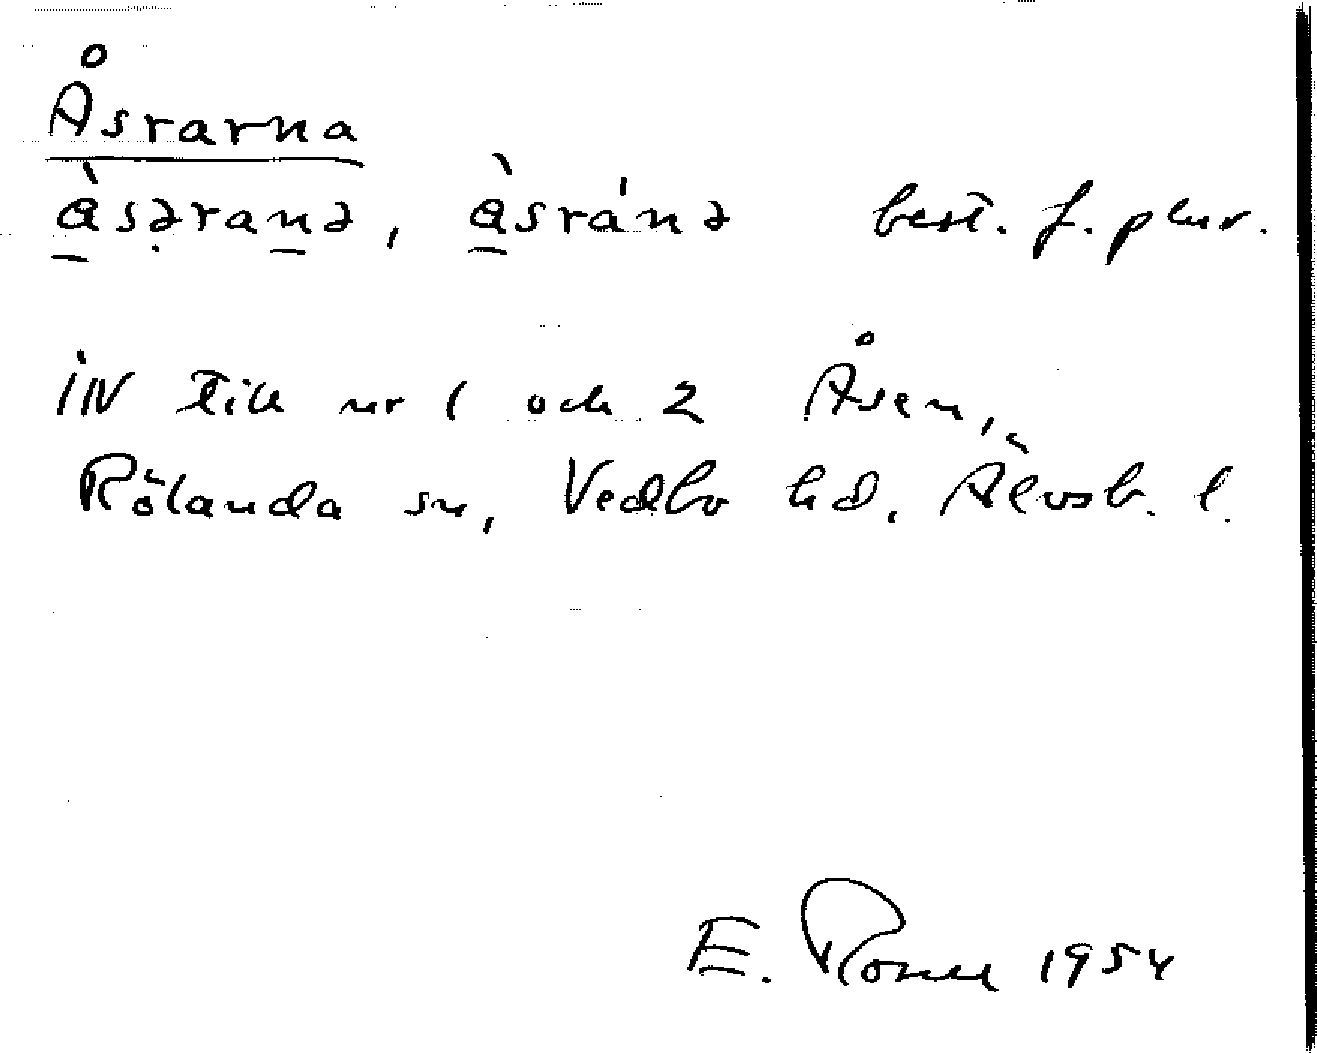 Åsrarna
àsəranə, àsránə best. f. plur.
inv till nr 1 och 2 Åsen,
Rölanda sn, Vedbo hd, Älvsb. l.
E. 1954